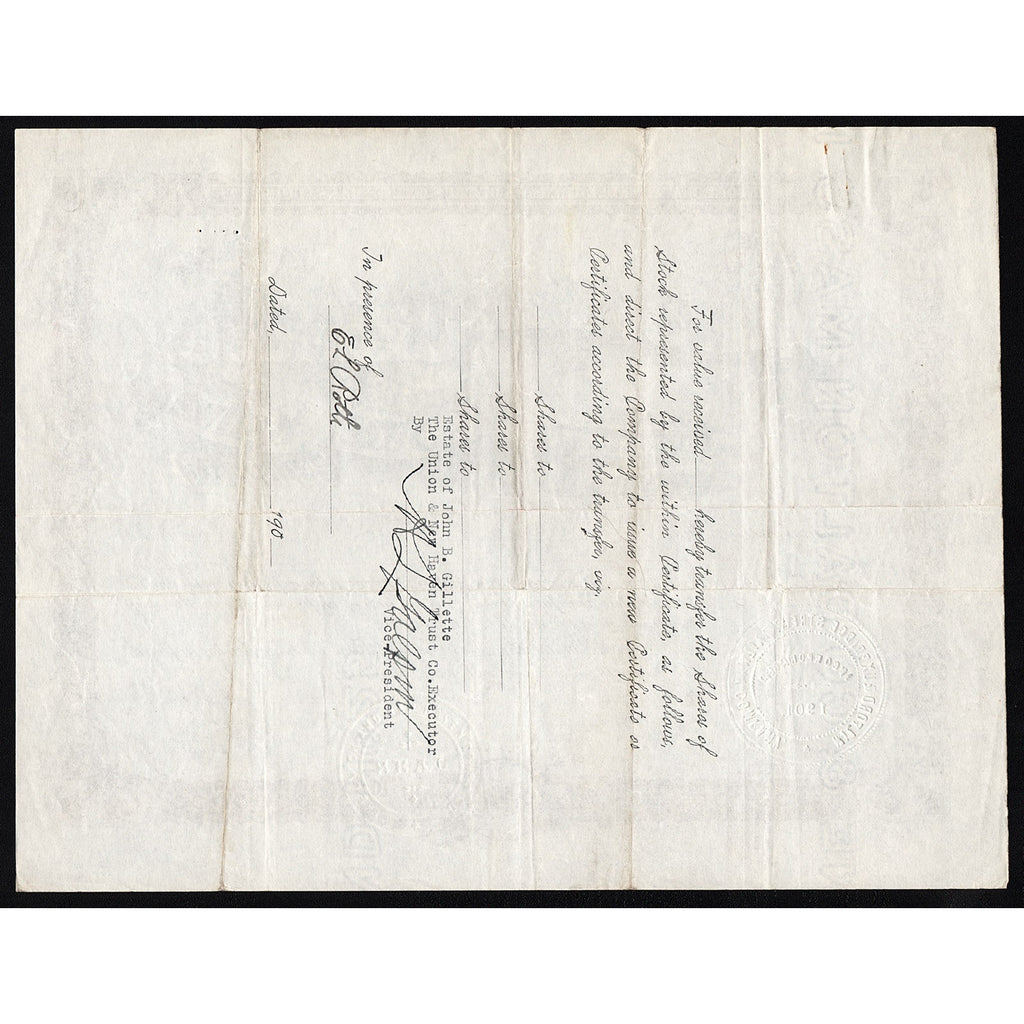 For value received ____ hereby transfer the Shares of
Stock represented by the within Certificate, as follows,
and direct the Company to issue a new Certificate or
Certificates according to the transfer, viz.
Shares to
Shares to
Shares to
Estate of John B. Gillette
The Union & New Haven Trust Co. Executor
By
Vice-President
In presence of
Dated, 190
1901